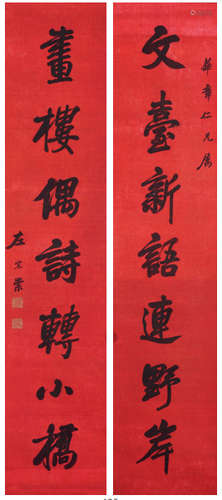 華章仁兄属
文臺新語連野岸
畫樓偶詩轉小橋
左宗棠